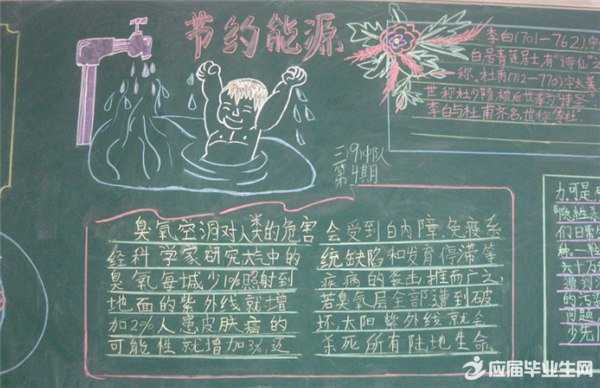 节约能源
李白(701-762),
白居青莲居士,有"诗仙"之
称,杜甫(712-770)字子美
世称杜少陵
李白与杜甫齐名,世称李杜
三(9)中队
第4期
臭氧空洞对人类的危害
经科学家研究大气中的
臭氧每减少1%照射到
地面的紫外线就增
加2%人患皮肤癌的
可能性就增加3%,还
会受到白内障,免疫系
统缺陷和发育停滞等
症病的袭击推而广之,
若臭氧层全部遭到破
坏,太阳紫外线就会
杀死所有陆地生命
力,可是
们日
六十万
的污
问题
少先
应届毕业生网